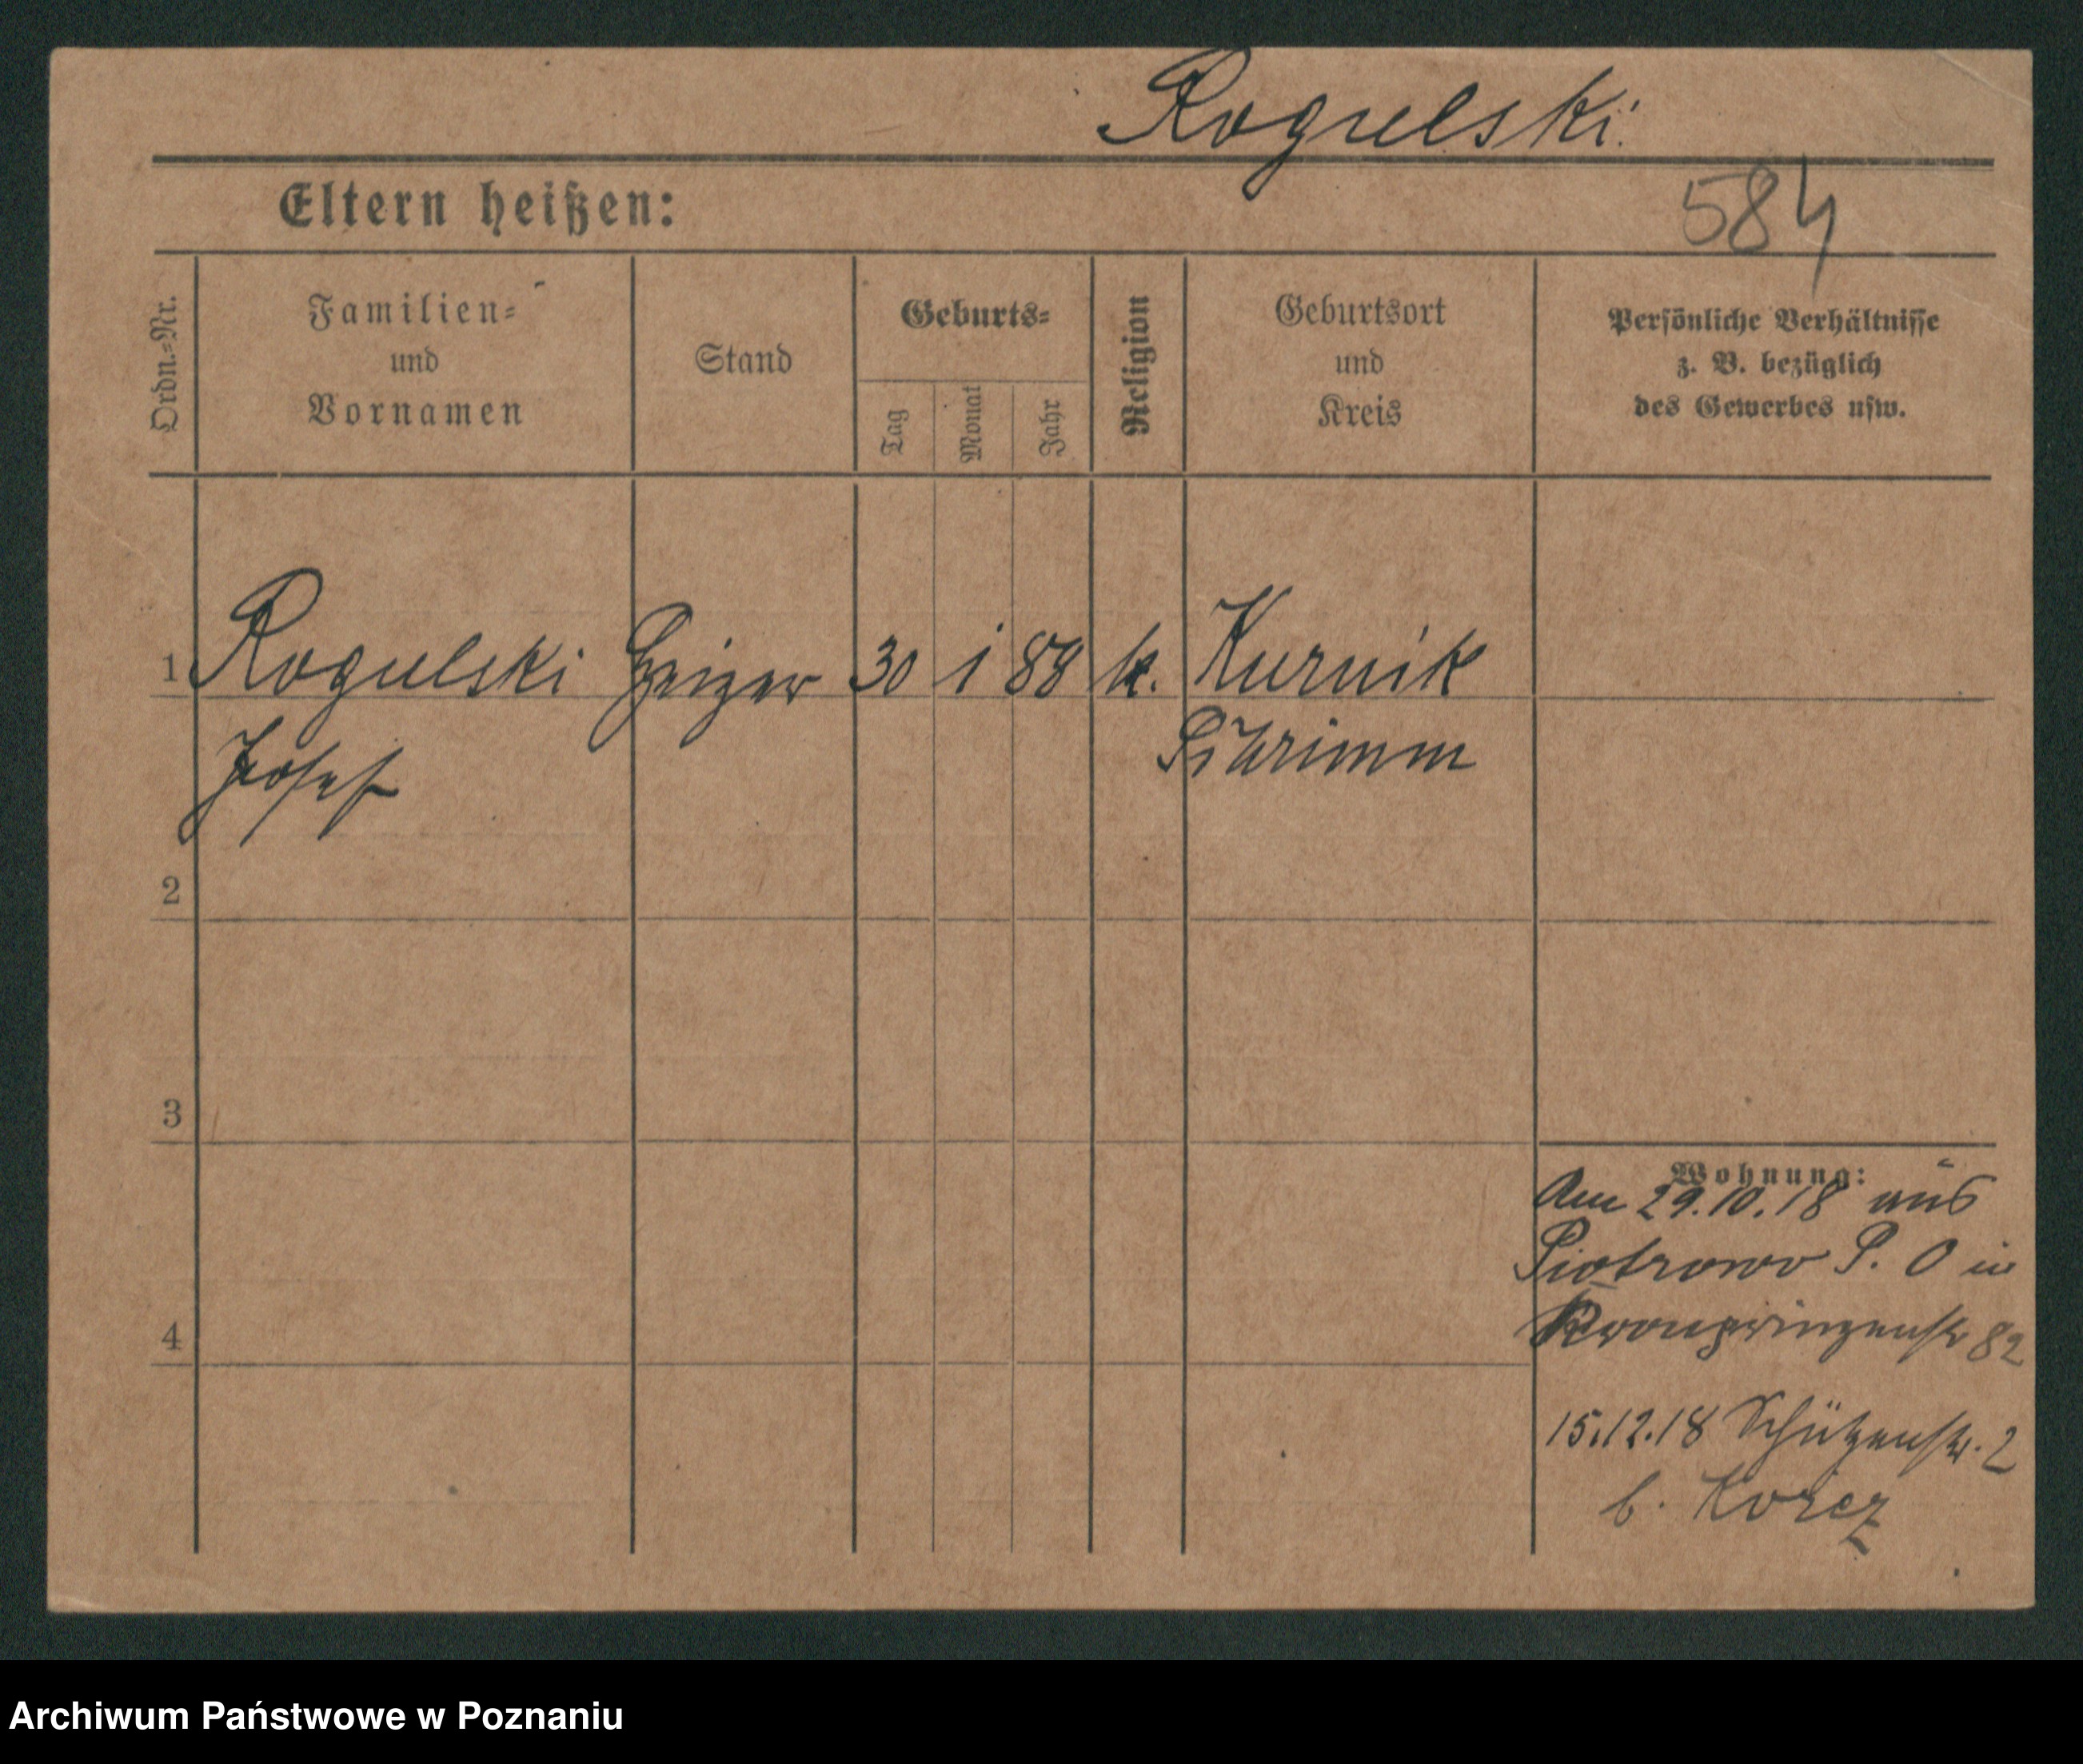 Rogulski
584
Eltern heißen:
Ordn.=Nr.
Familien=
und
Vornamen
Stand
Geburts=
Tag
Monat
Jahr
Religion
Geburtsort
und
Kreis
Persönliche Verhältnisse
z. B. bezüglich
des Gewerbes usw.
1 Rogulski Heizer 30 1 88 k. Kurnik
Josef Schrimm
2
3
4
Wohnung:
Am 29.10.18 aus
Piotrowo P. O in
Kronprinzenstr 82
15.12.18 Schützenstr. 2
b. Korcz
Archiwum Państwowe w Poznaniu